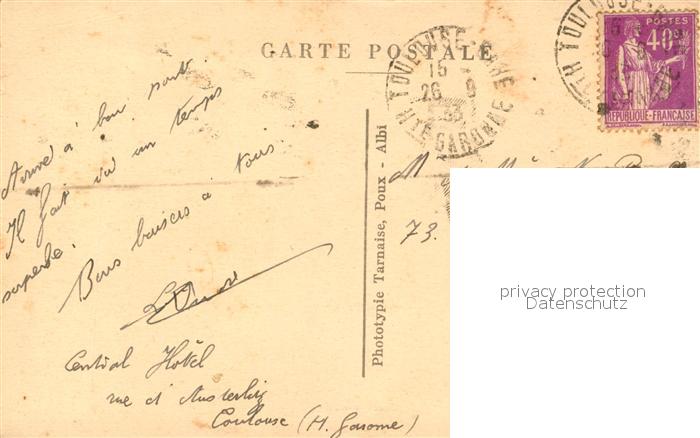 CARTE POSTALE
Arrivé à bon port.
Il fait ici un temps
superbe.
Bons baisers à tous.
Central Hôtel
rue d'Austerlitz
Toulouse (H. Garonne)
Phototypie Tarnaise, Poux - Albi
TOULOUSE GARE
15
26 9
Hte GARONNE
TOULOUSE
POSTES
40c
REPUBLIQUE-FRANÇAISE
73.
privacy protection
Datenschutz